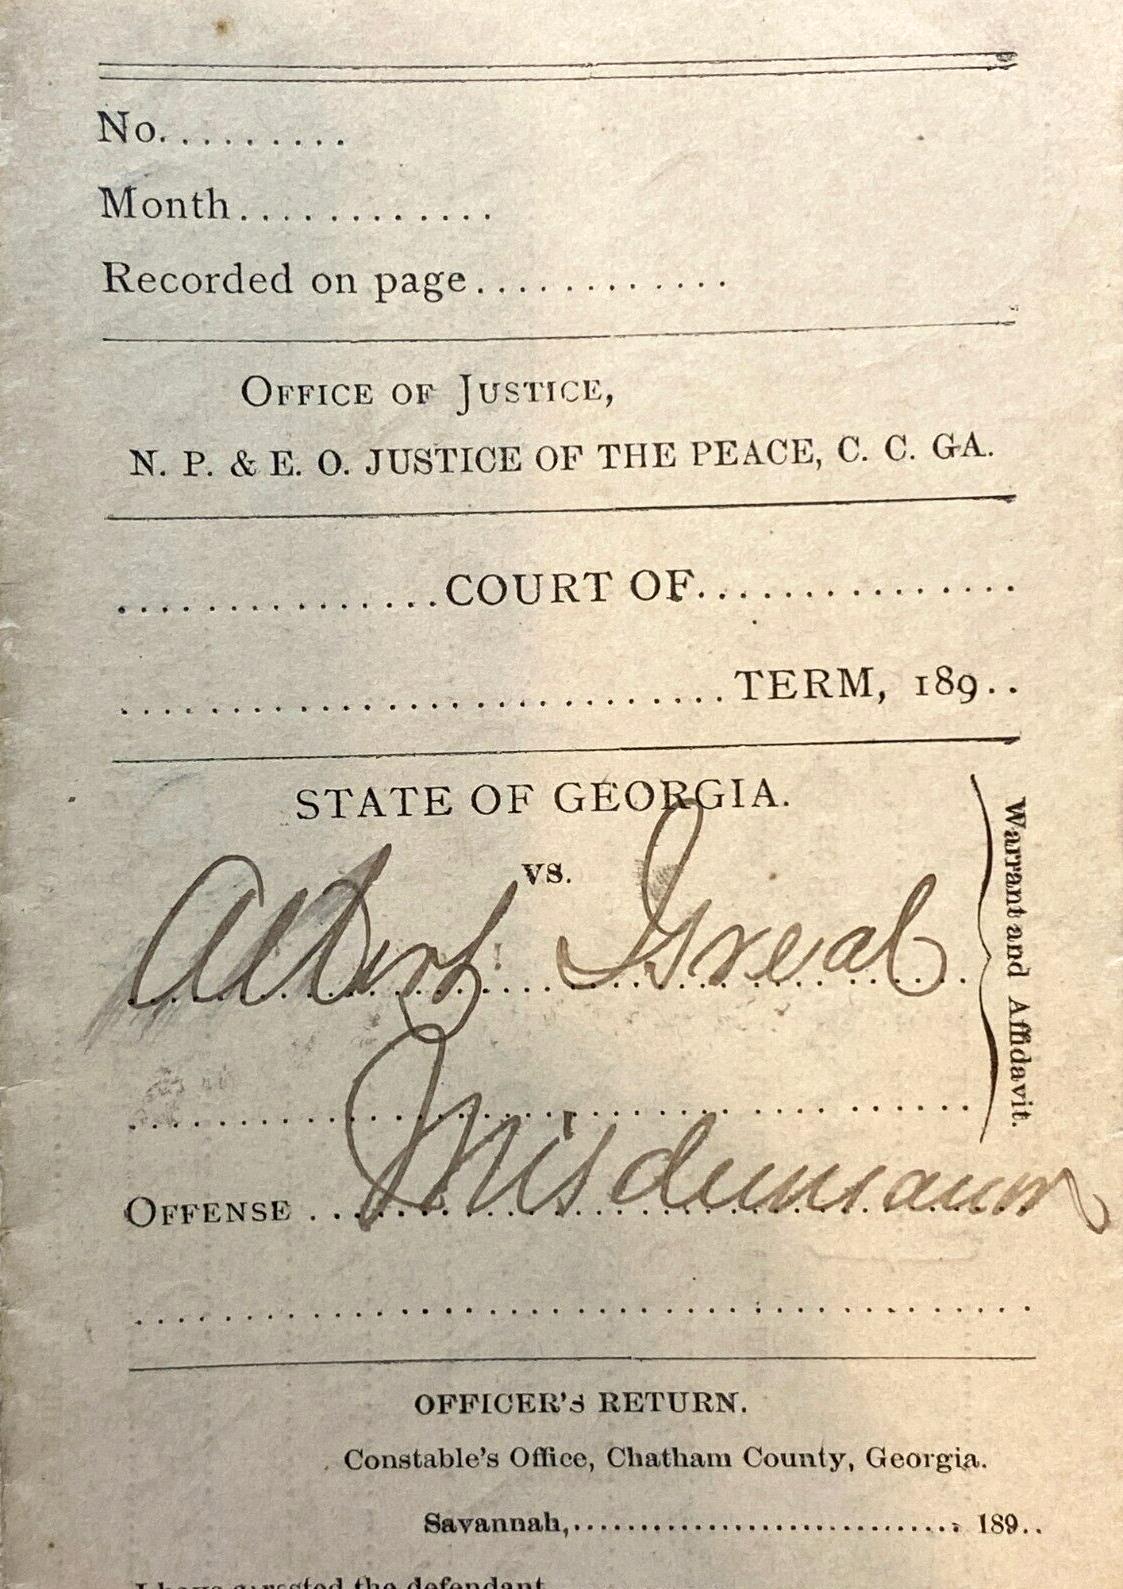 No..........
Month............
Recorded on page............
OFFICE OF JUSTICE,
N. P. & E. O. JUSTICE OF THE PEACE, C. C. GA.
...............COURT OF...............
............................TERM, 189..
STATE OF GEORGIA.
vs.
Albert
Warrant and Affidavit.
OFFENSE .. Misdemeanor
OFFICER'S RETURN.
Constable's Office, Chatham County, Georgia.
Savannah,............................ 189..
I have arrested the defendant